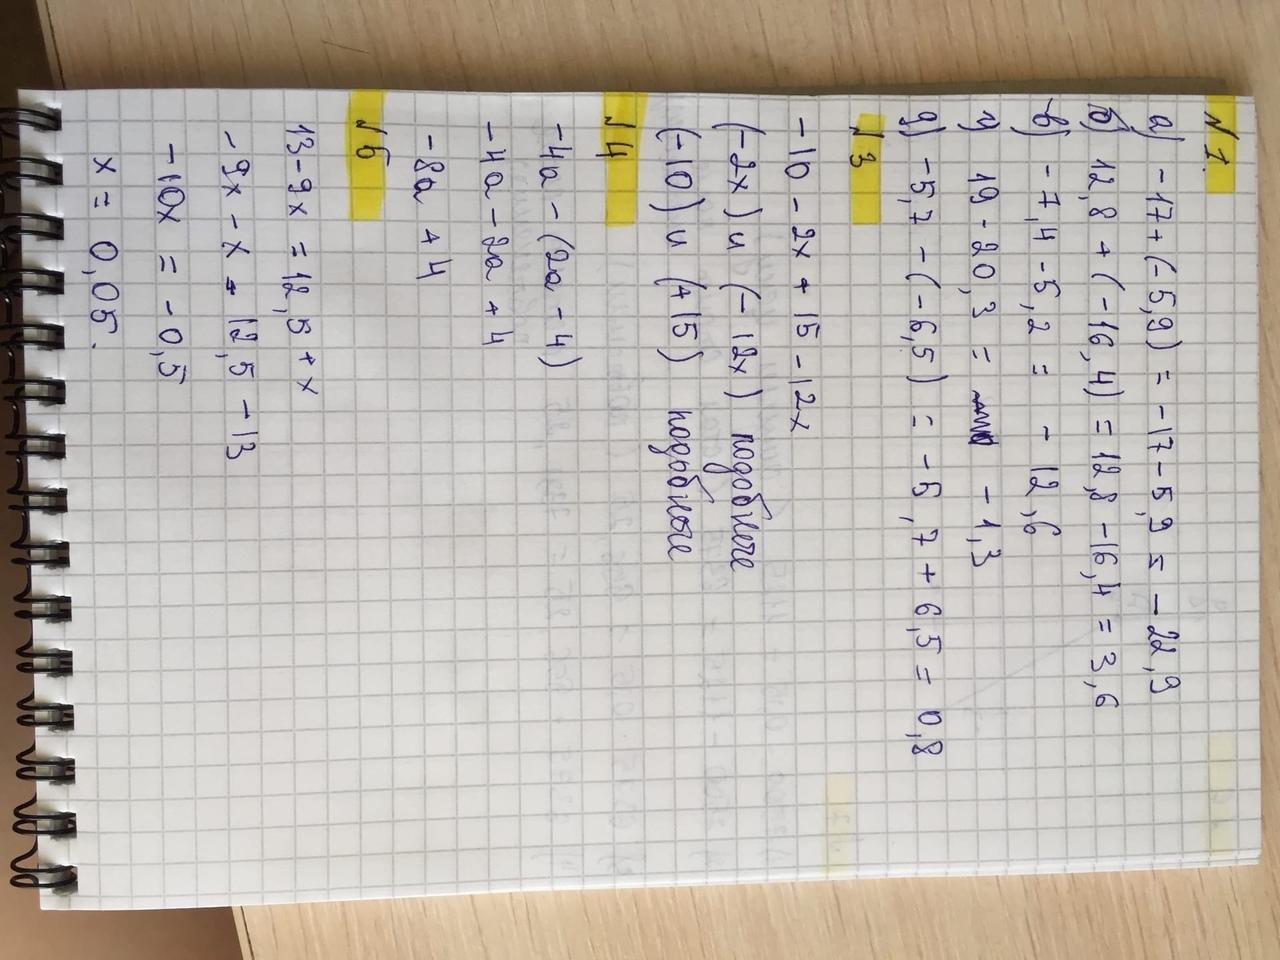 № 1.
а) -17+(-5,9) = -17-5,9 = -22,9
б) 12,8 + (-16,4) = 12,8 -16,4 = 3,6
в) -7,4 -5,2 = -12,6
г) 19 - 20,3 = -1,3
д) -5,7 - (-6,5) = -5,7 + 6,5 = 0,8
№ 3
-10 - 2x + 15 - 12x
(-2x) и (-12x) подобные
(-10) и (+15) подобные
№ 4
-4a - (2a - 4)
-4a - 2a + 4
-8a + 4
№ 5
13 - 9x = 12,5 + x
-9x - x = 12,5 - 13
-10x = -0,5
x = 0,05.